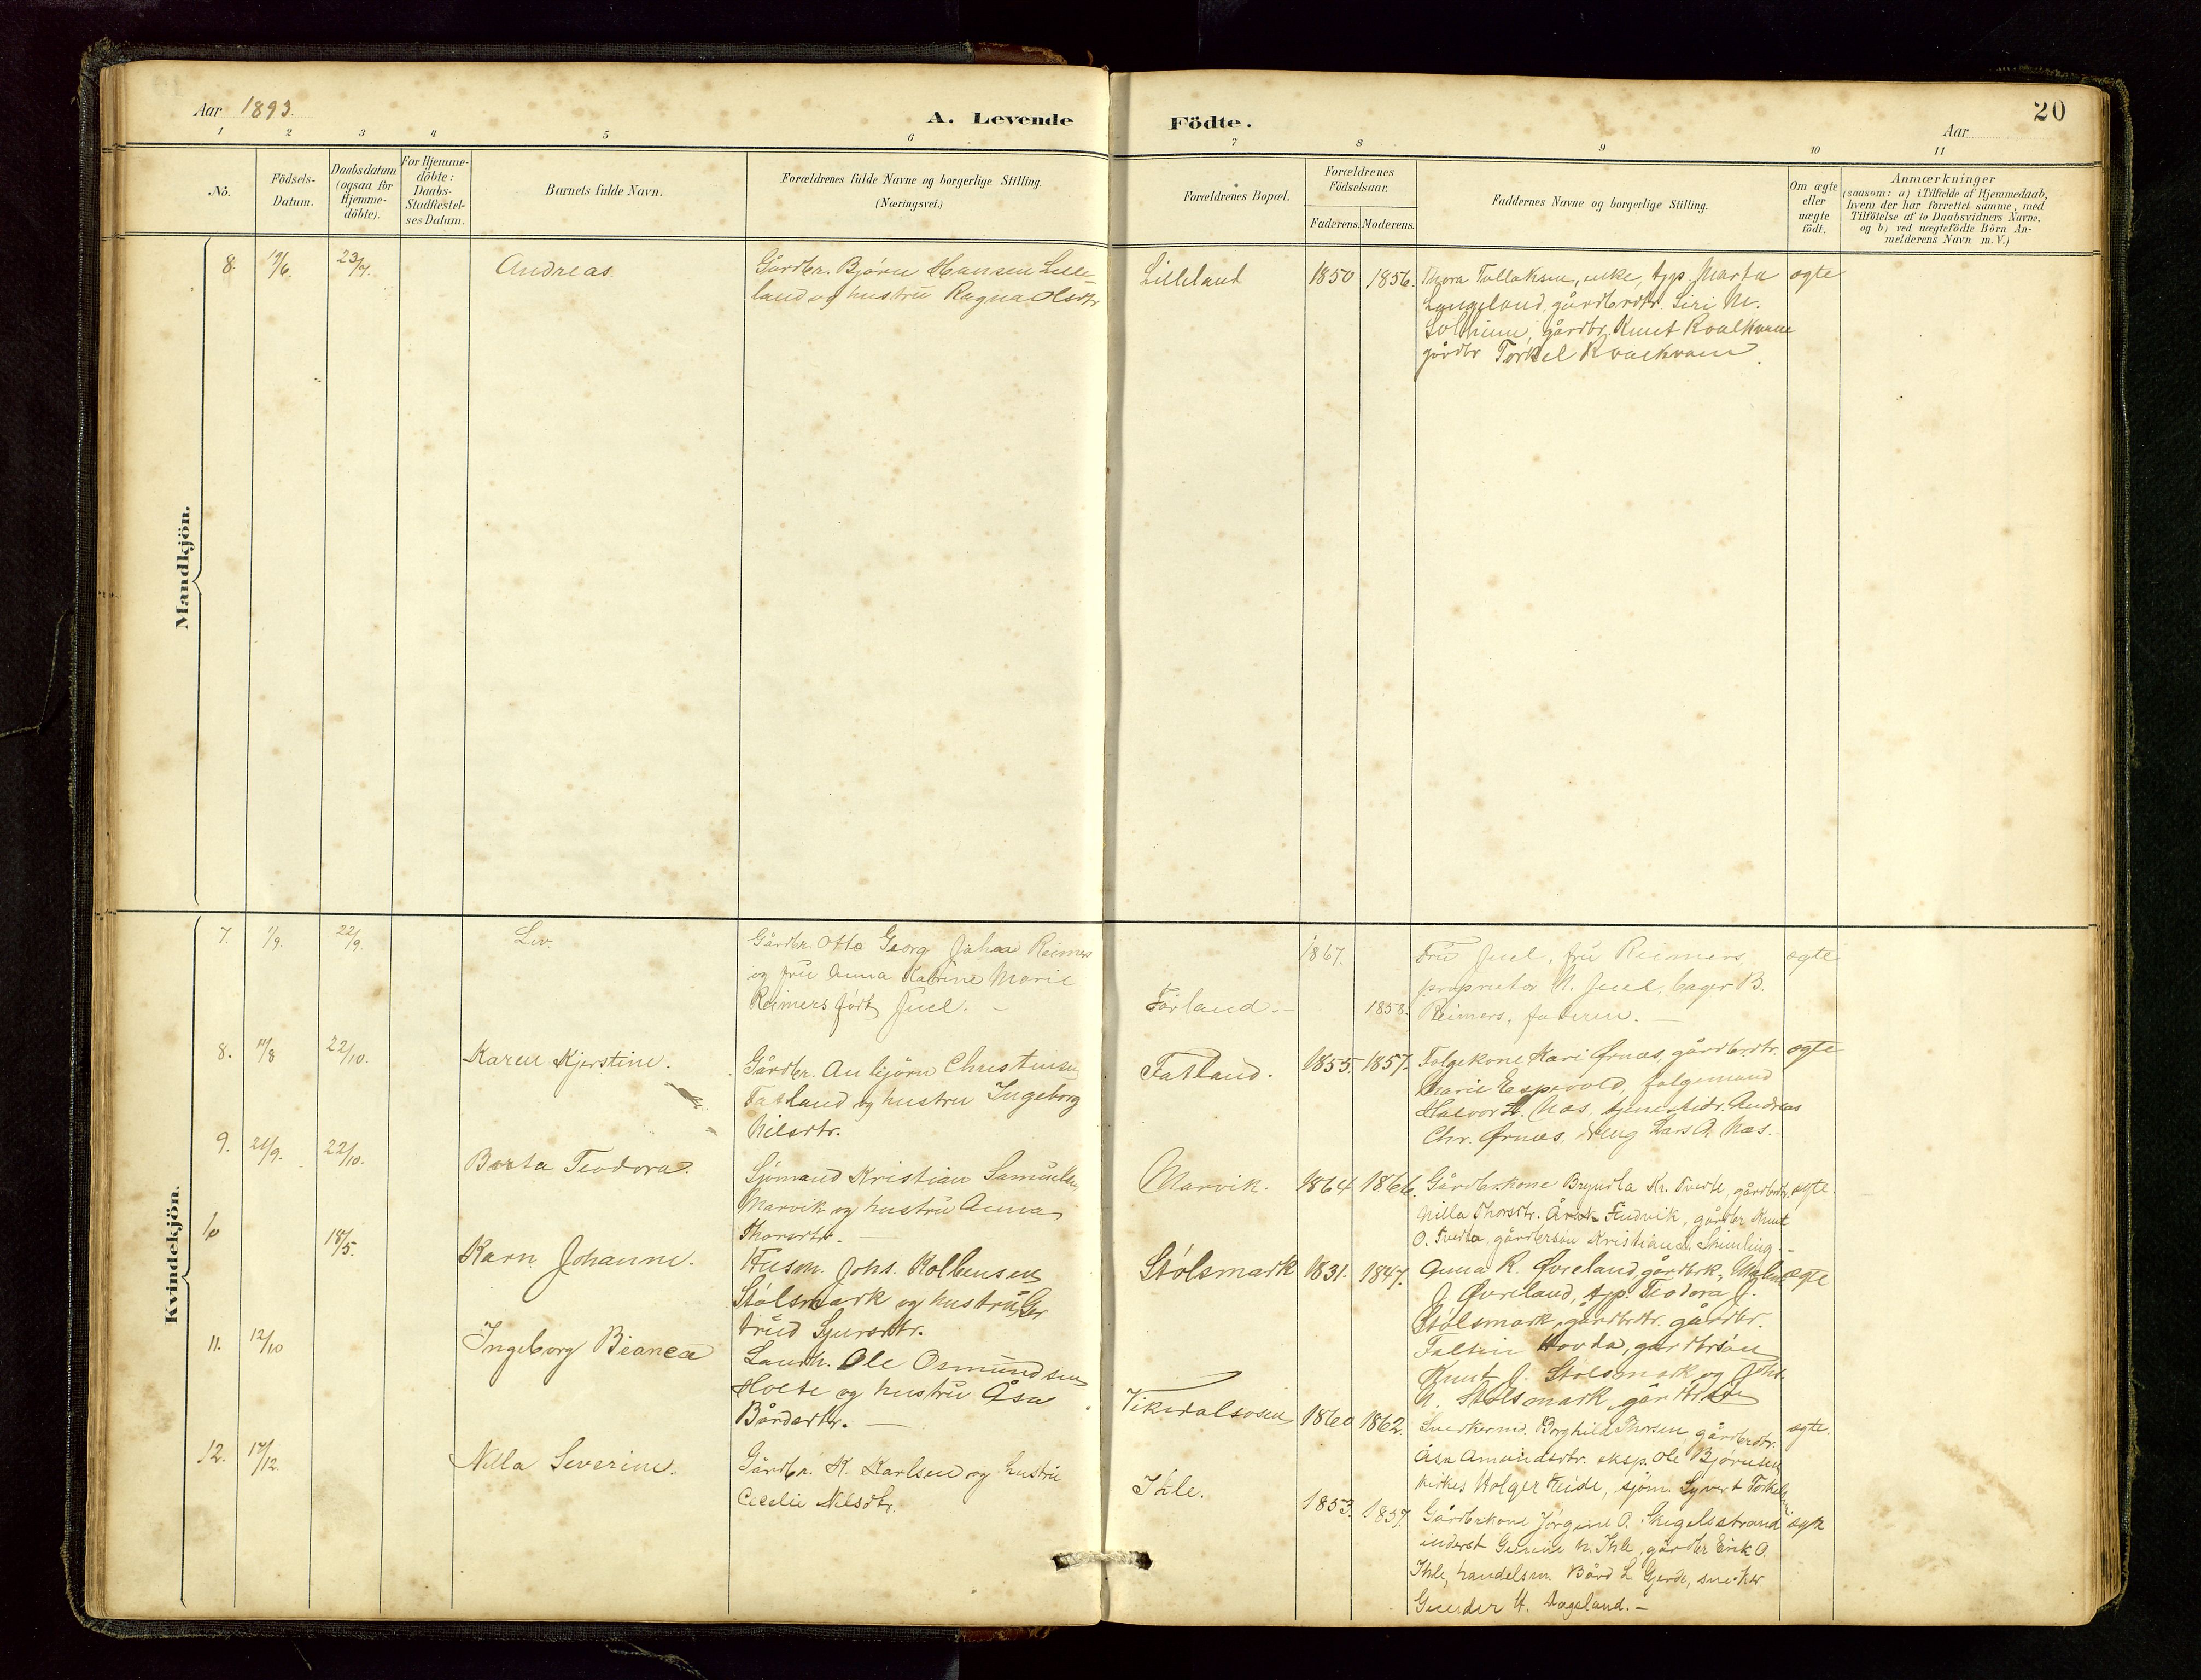 Aar 1893.
A. Levende Födte.
20
Aar
1 2 3 4 5 6 7 8 9 10 11
No.
Födsels-Datum.
Daabsdatum (ogsaa for Hjemme-döbte).
For Hjemme-döbte: Daabs-Stadfæstel-ses Datum.
Barnets fulde Navn.
Forældrenes fulde Navne og borgerlige Stilling.
(Næringsvei.)
Forældrenes Bopæl.
Forældrenes Födselsaar.
Faderens. Moderens.
Faddernes Navne og borgerlige Stilling.
Om ægte eller uægte födt.
Anmærkninger
(saasom: a) i Tilfælde af Hjemmedaab,
hvem der har forrettet samme, med
Tilföielse af to Daabsvidners Navne.
og b) ved uægtefödte Börn An-
melderens Navn m. V.)
Mandkjön.
8. 19/6. 23/7. Andreas.
Gårdbr. Bjørn Hansen Lille
land og hustru Ragna Olsdtr
Lilleland 1850 1856.
Thora Tollaksen, enke, tjp Marta
Langeland, gårdbrdtr. Siri M.
Solheim, gårdbr. Knut Kvalkvam
gårdbr Torkel Kvalkvam.
ægte
Kvindekjön.
7. 1/9. 22/9. Liv.
Gårdbr. Otto Georg Johan Reimers
og fru Anna Katrine Marie
Reimers født Juel. –
Førland. – 1867. 1858.
Fru Juel, fru Reimers,
proprietær N. Juel, bager B.
Reimers, faderen. –
ægte
8. 11/8 22/10. Karen Kjerstine.
Gårdbr. Anbjørn Christensen
Fatland og hustru Ingeborg
Nilsdtr.
Fatland. 1855. 1857.
Folgekone Kari Ørnæs, gårdbrdtr.
Marie Espevold, folgemand
Halvor A. Næs, Andreas
Chr. Ørnæs, dreng Lars A. Næs.
ægte
9. 21/9. 22/10. Berta Teodora.
Sjømand Kristian Samuelsen
Marvik og hustru Anna
Thorsdtr. –
Marvik. 1864 1866.
Gårdbrkone Bryndla Kr. Tveite, gårdbrdtr.
Nilla Thorsdtr. Fludvik, gårdbr Knut
O. Tveita, gårdbrsøn Kristian Skimling. –
ægte.
10 18/5. Karn Johanne.
Husm. Johs. Kolbensen
Stølsmark og hustru Ger
trud Sjursdtr.
Stølsmark 1831. 1847.
Anna R. Øvreland, gårdbrk, Malene
J. Øvreland, tjp. Teodora J.
Stølsmark, gårdbrdtr. gårdbr.
Faltin Hovda, gårdbrsøn
Knut J. Stølsmark og Johs.
N. Stølsmark, gårdbrsøn
ægte
11. 12/10 Ingeborg Bianca
Landh. Ole Osmundsen
Holte og hustru Åsa
Bårdsdtr. –
Vikedalsosen 1860 1862.
Borghild Thorsen, gårdbrdtr.
Åsa Amundsdtr. eksp. Ole Bjørnsen
Holger Eide, sjøm. Syvert Torkelsen
ægte.
12. 17/12. Nilla Severine.
Gårdbr. K. Karlsen og hustru
Cecelie Nilsdtr.
Ihle. 1853. 1857.
Gårdbrkone Jørgine O. Skigelsstrand
inderst Gunne N. Ihle, gårdbr Erik O.
Ihle, handelsm. Bård L Gjerde, snedker
H. Dageland. –
ægte